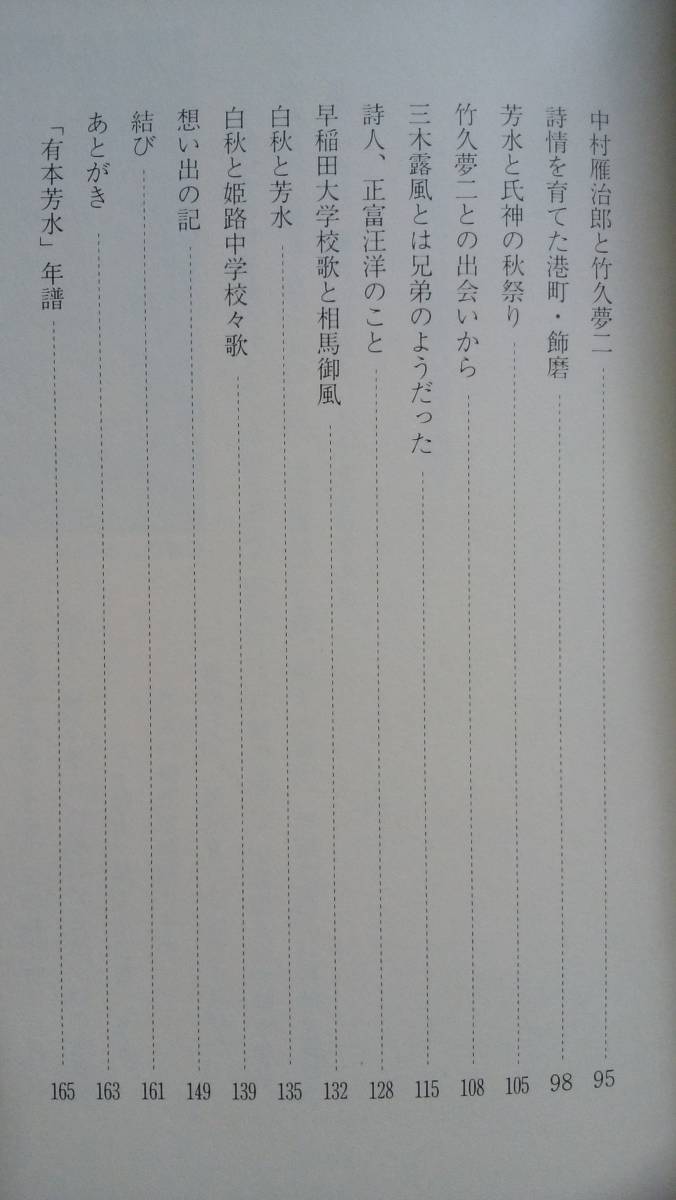 中村雁治郎と竹久夢二 95
詩情を育てた港町・飾磨 98
芳水と氏神の秋祭り 105
竹久夢二との出会いから 108
三木露風とは兄弟のようだった 115
詩人、正富汪洋のこと 128
早稲田大学校歌と相馬御風 132
白秋と芳水 135
白秋と姫路中学校々歌 139
想い出の記 149
結び 161
あとがき 163
「有本芳水」年譜 165